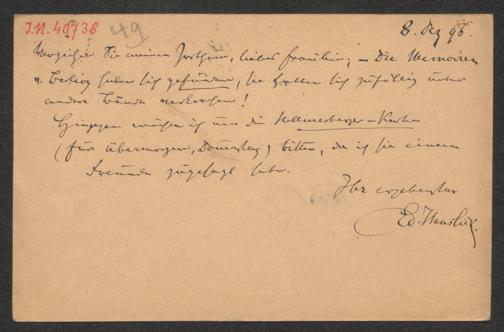 I.N. 40738
49
8. Dez 96.
Verzeihen Sie meinen Irrthum, liebes Fräulein; – Die Memoiren
v. Berlioz haben sich gefunden, sie hatten sich zufällig unter
andere Bände verkrochen!
Hingegen würde ich um die Hellmesberger-Karten
(für übermorgen, Donnerstag) bitten, da ich sie einem
Freunde zugesagt habe.
Ihr ergebenster
Ed. Hanslick.